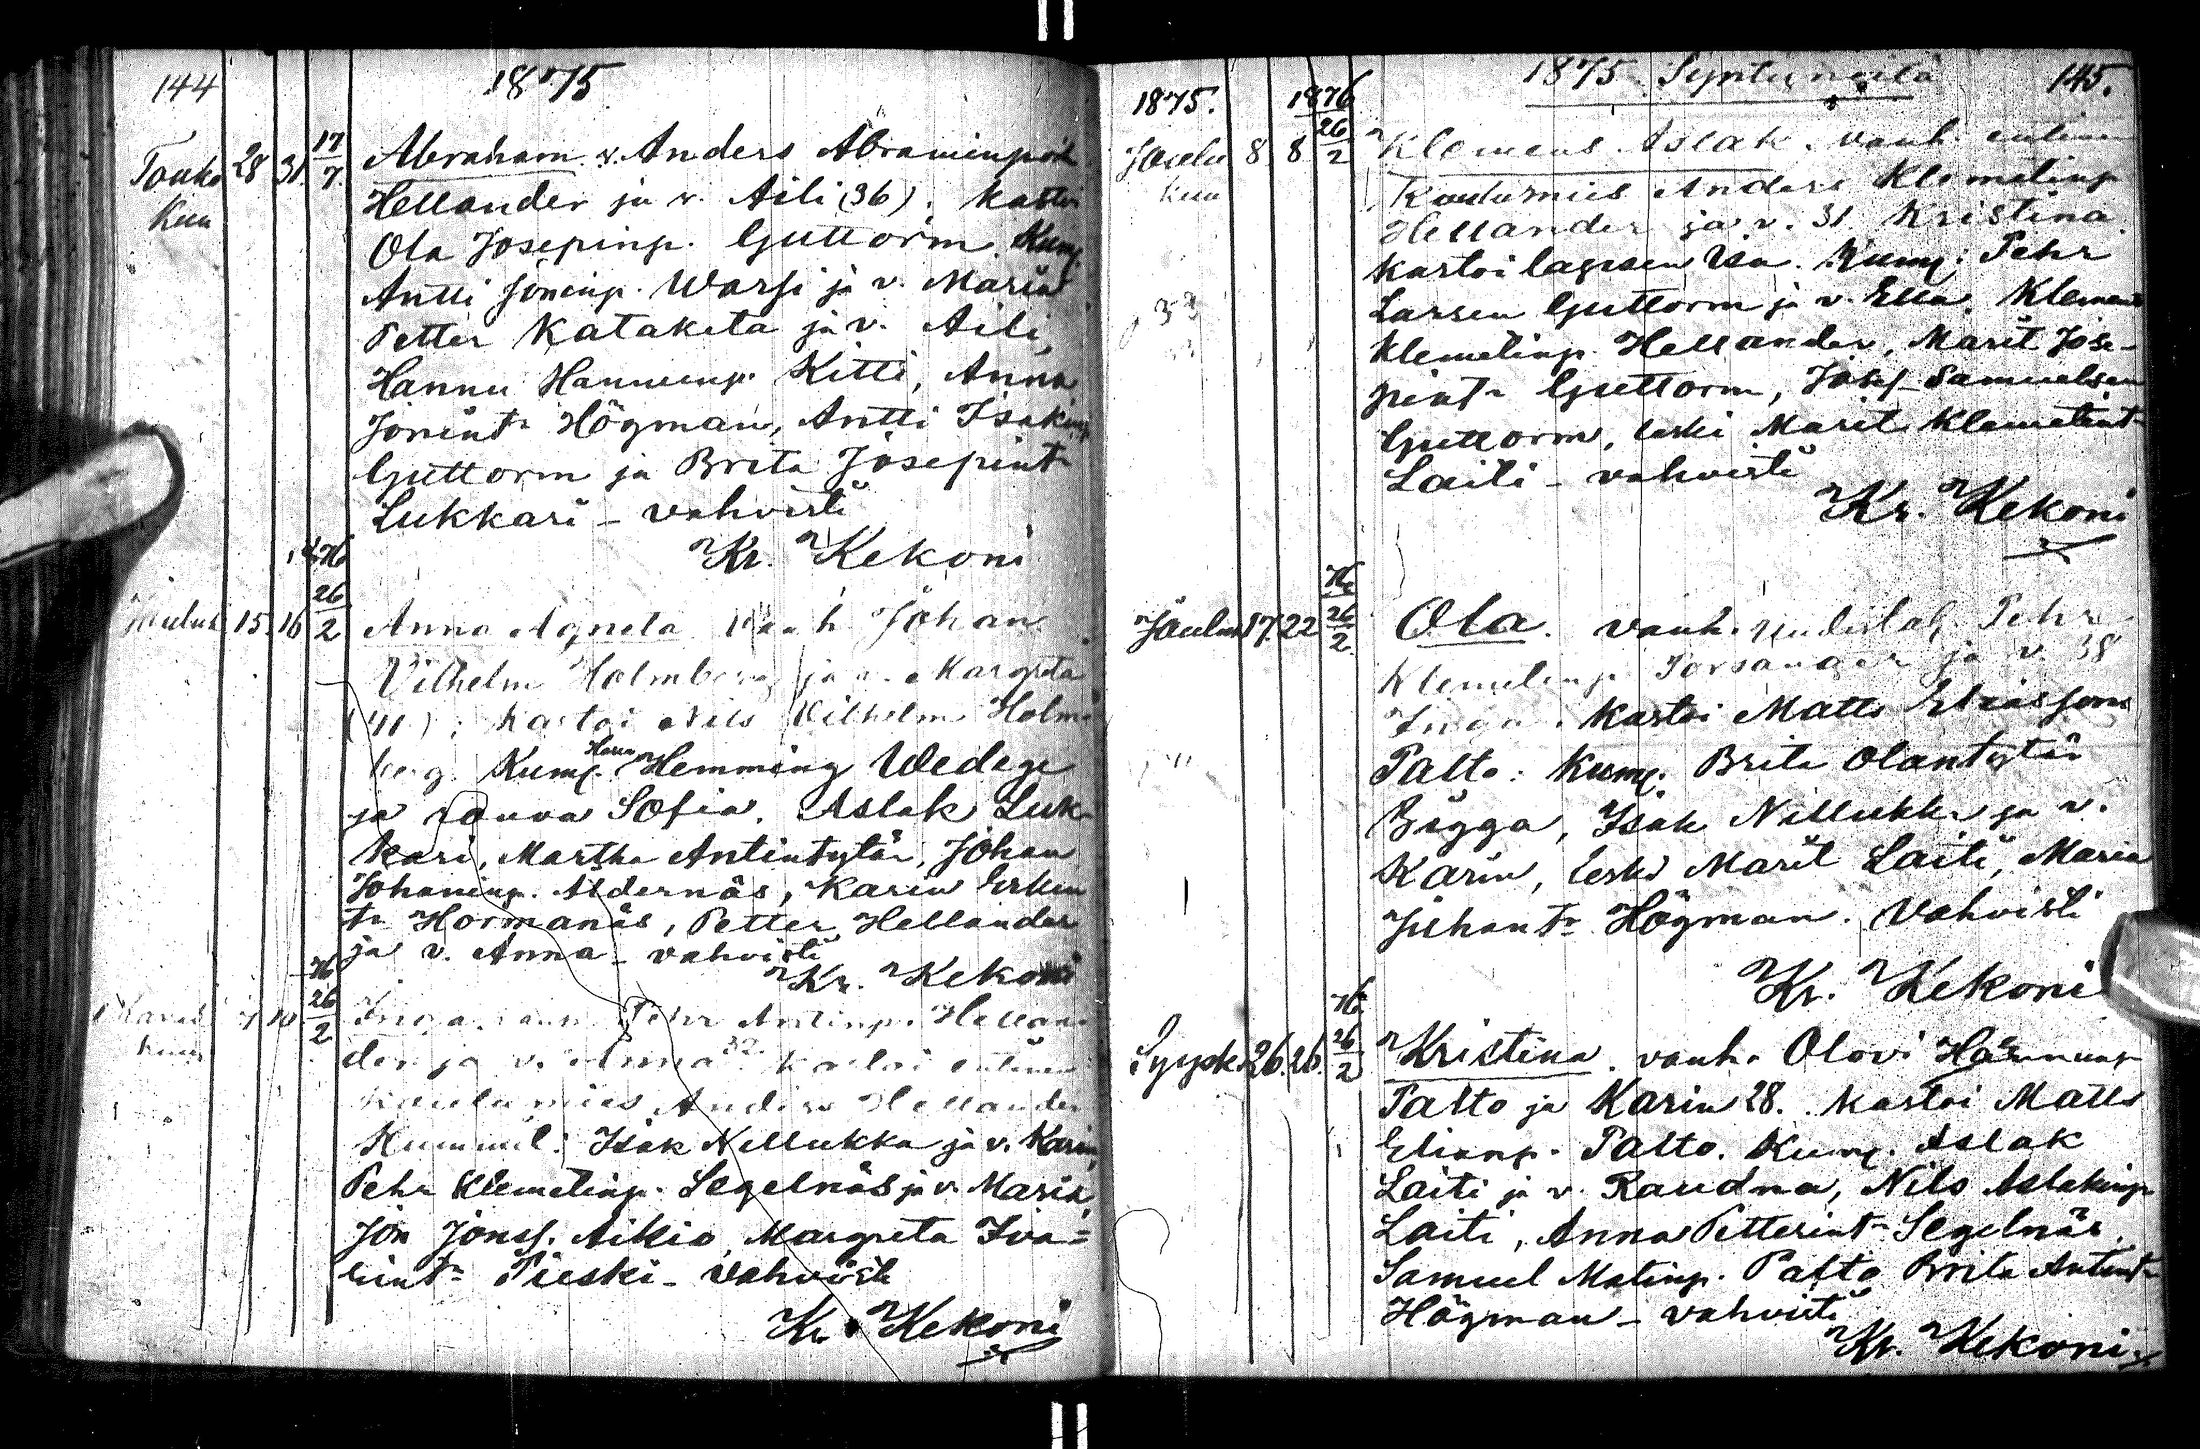 144
1875
Touko 28 31 17/7 Abraham v. Anders Abraminpoik
Kuu Hellander ja v. Aili (36). kastoi
Ola Josepinp. Guttorm. Kum.
Antti Joninp. Warsi ja v. Maria
Petter Kataketa ja v. Aili,
Hannu Hannunp. Kitti, Anna
Jonint. Högman, Antti Isakinp
Guttorm ja Brita Josepint
Lukkari - vahvisti
Kr. Kekoni
1876
Joulus 15. 16 26/2 Anna Agneta vanh Johan
Vilhelm Holmberg ja v. Margreta
(41); kastoi Nils Vilhelm Holm-
berg. Kum. Herra Hemming Wedege
ja rouva Sofia. Aslak Luk-
kari, Martha Antintytär, Johan
Johaninp. Aldernäs, Karin Erkin
tr Hormanäs, Petter Hellander
ja v. Anna - vahvisti
Kr. Kekoni
76
7 10 26/2 Inga. vanh Pehr Antinp. Hellan-
kuu der ja v. Anna 32 kastoi entinen
koulumies Anders Hellander
Kummit: Isak Nillukka ja v. Karin,
Pehr Klemetinp. Segelnäs ja v. Maria,
Jon Jonss. Aikio, Margreta Iva-
rint Pieski - vahvisti
Kr. Kekoni
1875 Syntyneitä 145.
1875. 1876
Joulu 8 8 26/2 Klemens Aslak. vanh. entinen
kuu Koulumies Anders Klemetinp
Hellander ja v. 31 Kristina
kastoi lapsen isä. Kum; Pehr
Larsen Guttorm ja v. Ella. Klemens
Klemetinp. Hellander, Marit Jose-
pint Guttorm, Josef Samuelsen
Guttorm, leski Marit Klemetint
Laiti - vahvisti
Kr. Kekoni
76
Joulun 17. 22 26/2 Ola. vanh. Pehr
Klemetinp. Porsanger ja v. 38
Inga. kastoi Matts Eliassons
Palto: kum. Brita Olantytär
Bigga, Isak Nillukka ja v.
Karin, leski Marit Laiti, Maria
Juhant Högman. Vahvisti
Kr. Kekoni
76
Syysk. 26. 26. 26/2 Kristina. vanh. Olovi Hannunp
Palto ja Karin 28. kastoi Matts
Elianp. Palto. Kum. Aslak
Laiti ja v. Raudna, Nils Aslakinp
Laiti, Anna Petterint Segelnäs,
Samuel Matinp. Palto Brita Antint
Högman - vahvisti
Kr. Kekoni